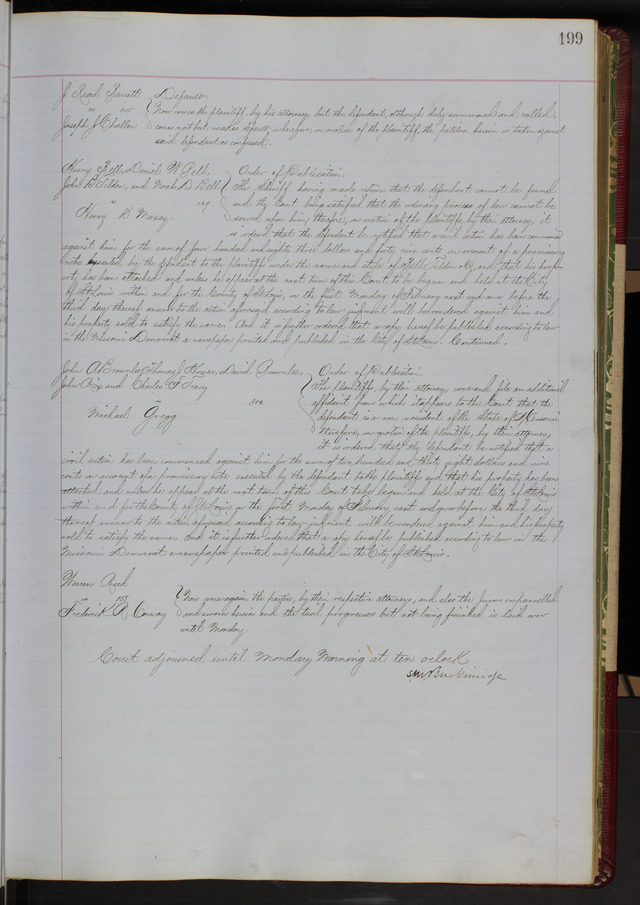 199
J Read Garrett Default
vs 215 Now comes the plaintiff, by his attorney but the defendant, although duly summoned and called,
Joseph J Challen comes not but makes default, wherefore, on motion of the plaintiff, the petition herein is taken against
said defendant as confessed.
Henry Bell, Daniel W Bell, Order of Publication.
John B Tilden, and Noah D Bell The Sheriff having made return that the defendant cannot be found
vs 129 and the Court being satisfied that the ordinary process of law cannot be
Henry B Maxey. served upon him; therefore, on motion of the plaintiffs, by their attorney, it
is ordered that the defendant be notified that a civil action has been commenced
against him for the sum of four hundred and eighty three dollars and forty nine cents, on account of a promissory
note executed by the defendant to the plaintiffs under the name and style of Bell, Tilden & Co, and that his prop
erty has been attached and unless he appear at the next term of this Court to be begun and held at the City
of St Louis within and for the County of St Louis, on the first Monday of February next and on or before the
third day thereof answer to the action aforesaid, according to law judgment will be rendered against him and
his property sold to satisfy the same. And it is further ordered that a copy hereof be published according to law
in the Missouri Democrat a newspaper printed and published in the City of St Louis. Continued.
John A Brownlee, Thomas J Homer, David Brownlee, Order of Publication.
John Rix and Charles F Tracy The plaintiffs, by their attorney, come and file an additional
vs 300 affidavit from which it appears to the Court that the
Michael Gregg defendant is a non resident of the State of Missouri
therefore, on motion of the plaintiffs, by their attorney,
it is ordered that the defendant be notified that a
civil action has been commenced against him for the sum of two hundred and thirty eight dollars and nine
cents on account of a promissory note executed by the defendant to the plaintiffs and that his property has been
attached, and unless he appear at the next term of this Court to be begun and held at the City of St Louis
within and for the County of St Louis on the first Monday of February next and on or before the third day
thereof answer to the action aforesaid according to law judgment will be rendered against him and his property
sold to satisfy the same. And it is further ordered that a copy hereof be published according to law in the
Missouri Democrat a newspaper printed and published in the City of St Louis.
Warren Reed
vs Now come again the parties, by their respective attorneys, and also the jurors empannelled
Frederick R Conway and sworn herein and the trial progresses but not being finished is laid over
until Monday
Court adjourned until Monday Morning at ten oclock
S M Breckinridge